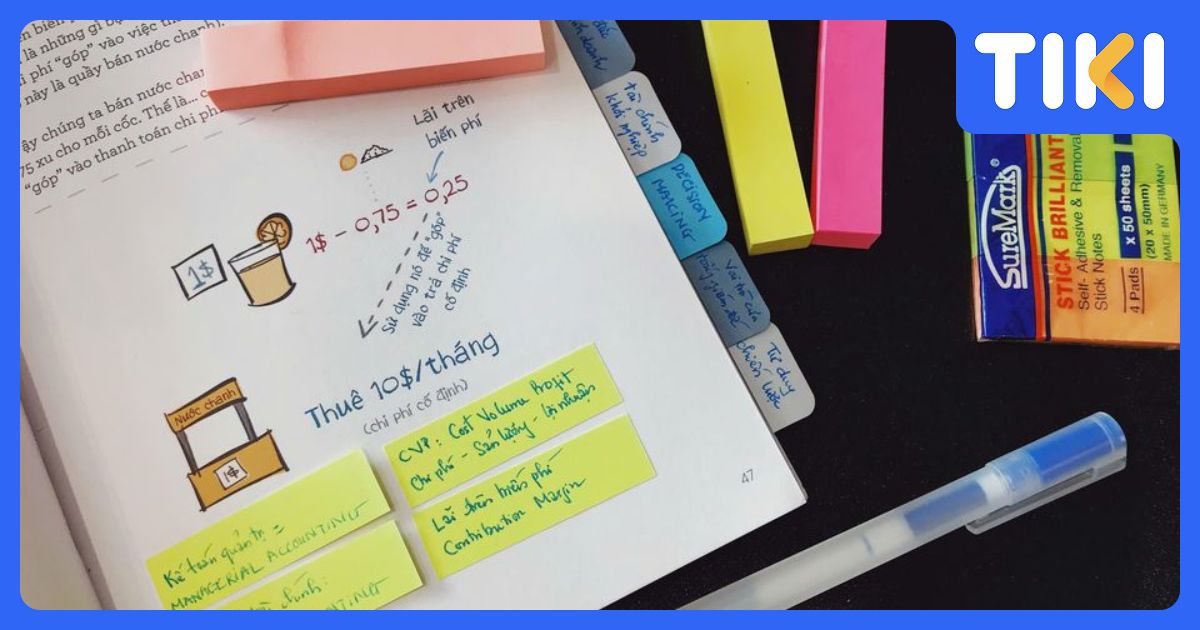 TIKI
là những gì
phí "góp" vào việc
này là quầy bán nước chanh).
chúng ta bán nước
75 xu cho mỗi cốc. Thế là...
"góp" vào thanh toán chi
Lãi trên
biến phí
1$ - 0,75 = 0,25
1$
Sử dụng nó để "góp"
vào trả chi phí
cố định
Thuê 10$/tháng
(chi phí cố định)
Nước chanh
1$
CVP: Cost Volume Profit
Chi phí - Sản lượng - lợi nhuận
Lãi trên biến phí
Contribution Margin
Kế toán quản trị =
MANAGERIAL ACCOUNTING
47
tài chính
khởi nghiệp
DECISION
MAKING
Vai trò của
Tư duy
chiến lược
SureMark®
STICK BRILLIANT
Self-Adhesive & Remova
Stick Notes
4 Pads
x 50 sheets
(20 x 50mm)
MADE IN GERMANY